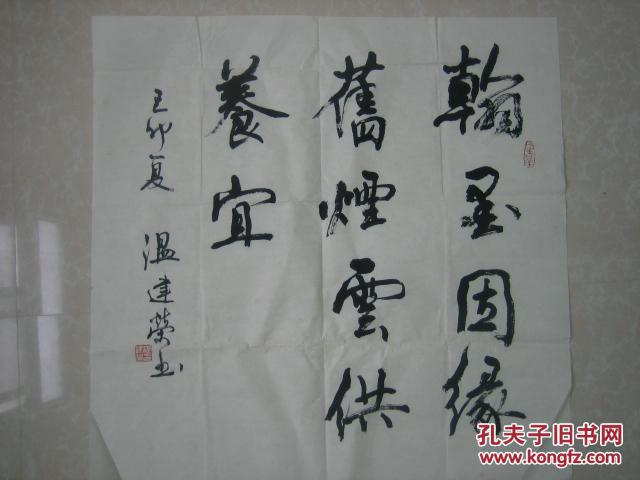 翰墨因缘
舊煙雲供
養宜
卯夏 溫建榮书
孔夫子旧书网
www.kongfz.com